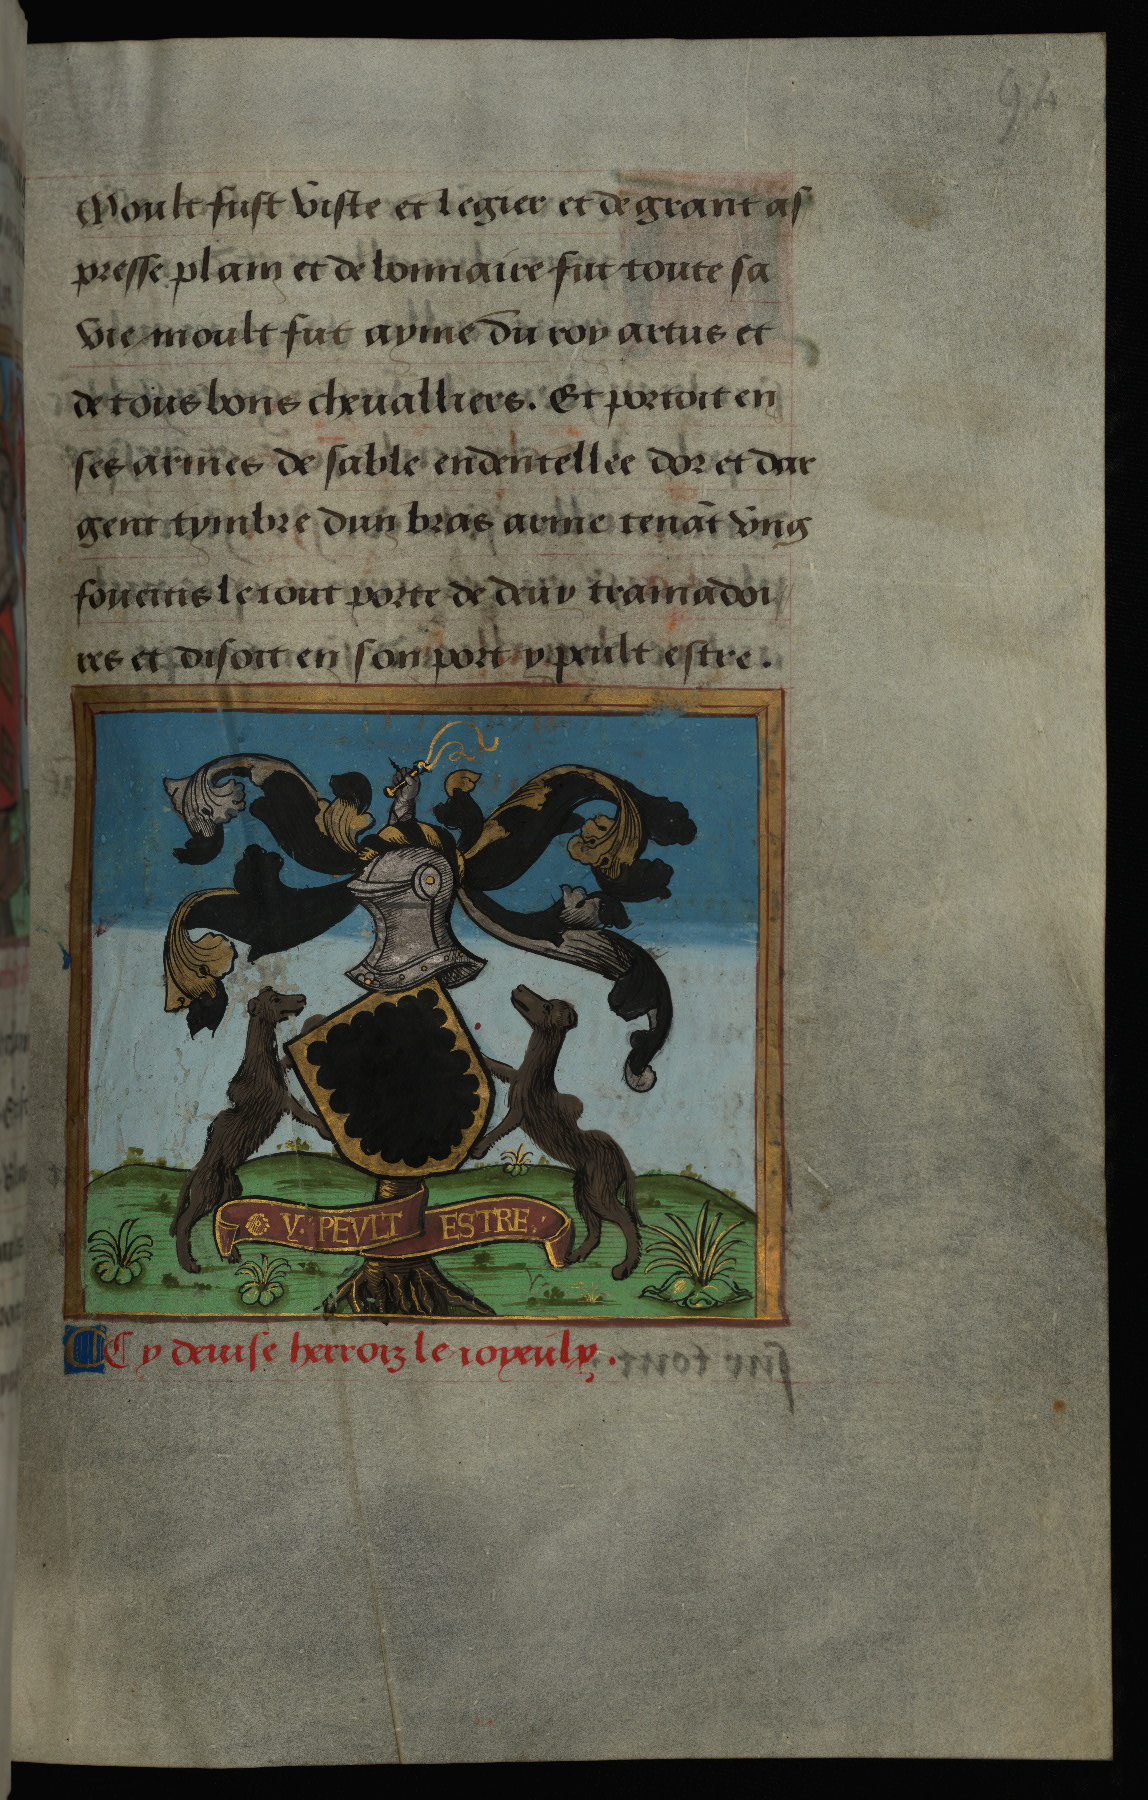 94
Moult fust viste et legier et de grant as
presse plain et de bonnaire fut toute sa
vie moult fut ayme du roy artus et
de tous bons chevalliers. Et portoit en
ses armes de sable endentellee dor et dar
gent tymbre dun bras arme tenāt vng
fouetis le tout porte de deux tramadoi
res et disoit en son port y peult estre.
Y. PEVLT ESTRE.
Cy devise herroiz le ioyeulx.